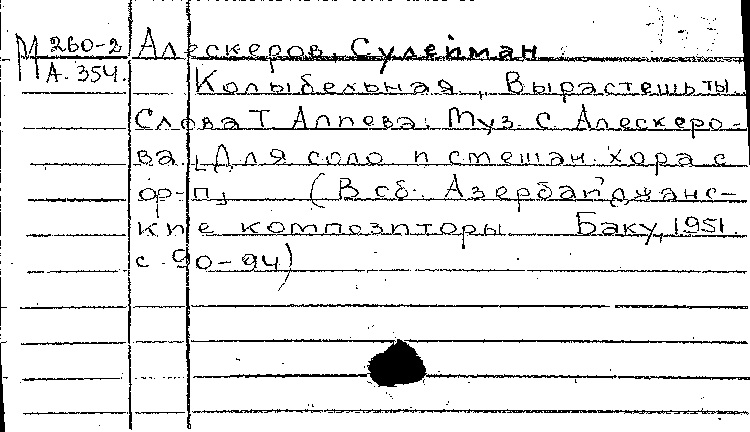 М 260-2 Алескеров, Сулейман
А. 354.
Колыбельная, Вырастешь ты.
Слова Т. Аппева. Муз. С. Алескеро-
ва. [Для соло п смешан. хора с
ор-п] (В сб. Азербайджанс-
кпе композпторы Баку, 1951.
с 90-94)